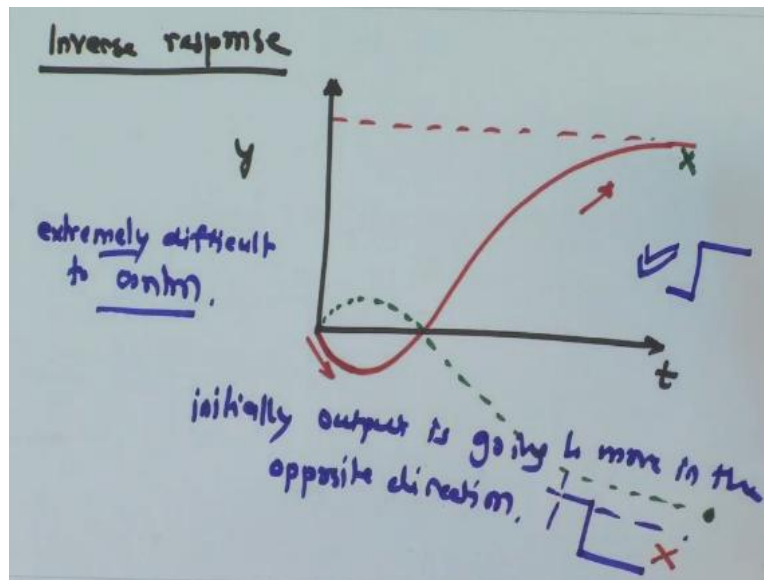 Inverse response
y
extremely difficult
to control.
t
initially output is going to move in the
opposite direction.